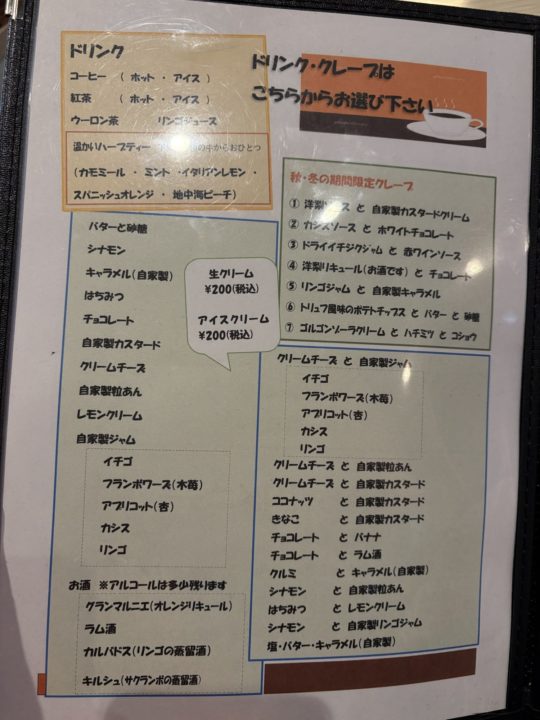 ドリンク
コーヒー （ ホット ・ アイス ）
紅茶 （ ホット ・ アイス ）
ウーロン茶 リンゴジュース
温かいハーブティー の中からおひとつ
（カモミール ・ ミント ・イタリアンレモン ・
スパニッシュオレンジ ・ 地中海ピーチ）
ドリンク・クレープは
こちらからお選び下さい
秋・冬の期間限定クレープ
① 洋梨ソース と 自家製カスタードクリーム
② カシスソース と ホワイトチョコレート
③ ドライイチジクジャム と 赤ワインソース
④ 洋梨リキュール（お酒です） と チョコレート
⑤ リンゴジャム と 自家製キャラメル
⑥ トリュフ風味のポテトチップス と バター と 砂糖
⑦ ゴルゴンゾーラクリーム と ハチミツ と コショウ
バターと砂糖
シナモン
キャラメル（自家製）
はちみつ
チョコレート
自家製カスタード
クリームチーズ
自家製粒あん
レモンクリーム
自家製ジャム
イチゴ
フランボワーズ（木苺）
アプリコット（杏）
カシス
リンゴ
お酒 ※アルコールは多少残ります
グランマルニエ（オレンジリキュール）
ラム酒
カルバドス（リンゴの蒸留酒）
キルシュ（サクランボの蒸留酒）
生クリーム
¥200（税込）
アイスクリーム
¥200（税込）
クリームチーズ と 自家製ジャム
イチゴ
フランボワーズ（木苺）
アプリコット（杏）
カシス
リンゴ
クリームチーズ と 自家製粒あん
クリームチーズ と 自家製カスタード
ココナッツ と 自家製カスタード
きなこ と 自家製カスタード
チョコレート と バナナ
チョコレート と ラム酒
クルミ と キャラメル（自家製）
シナモン と 自家製粒あん
はちみつ と レモンクリーム
シナモン と 自家製リンゴジャム
塩・バター・キャラメル（自家製）